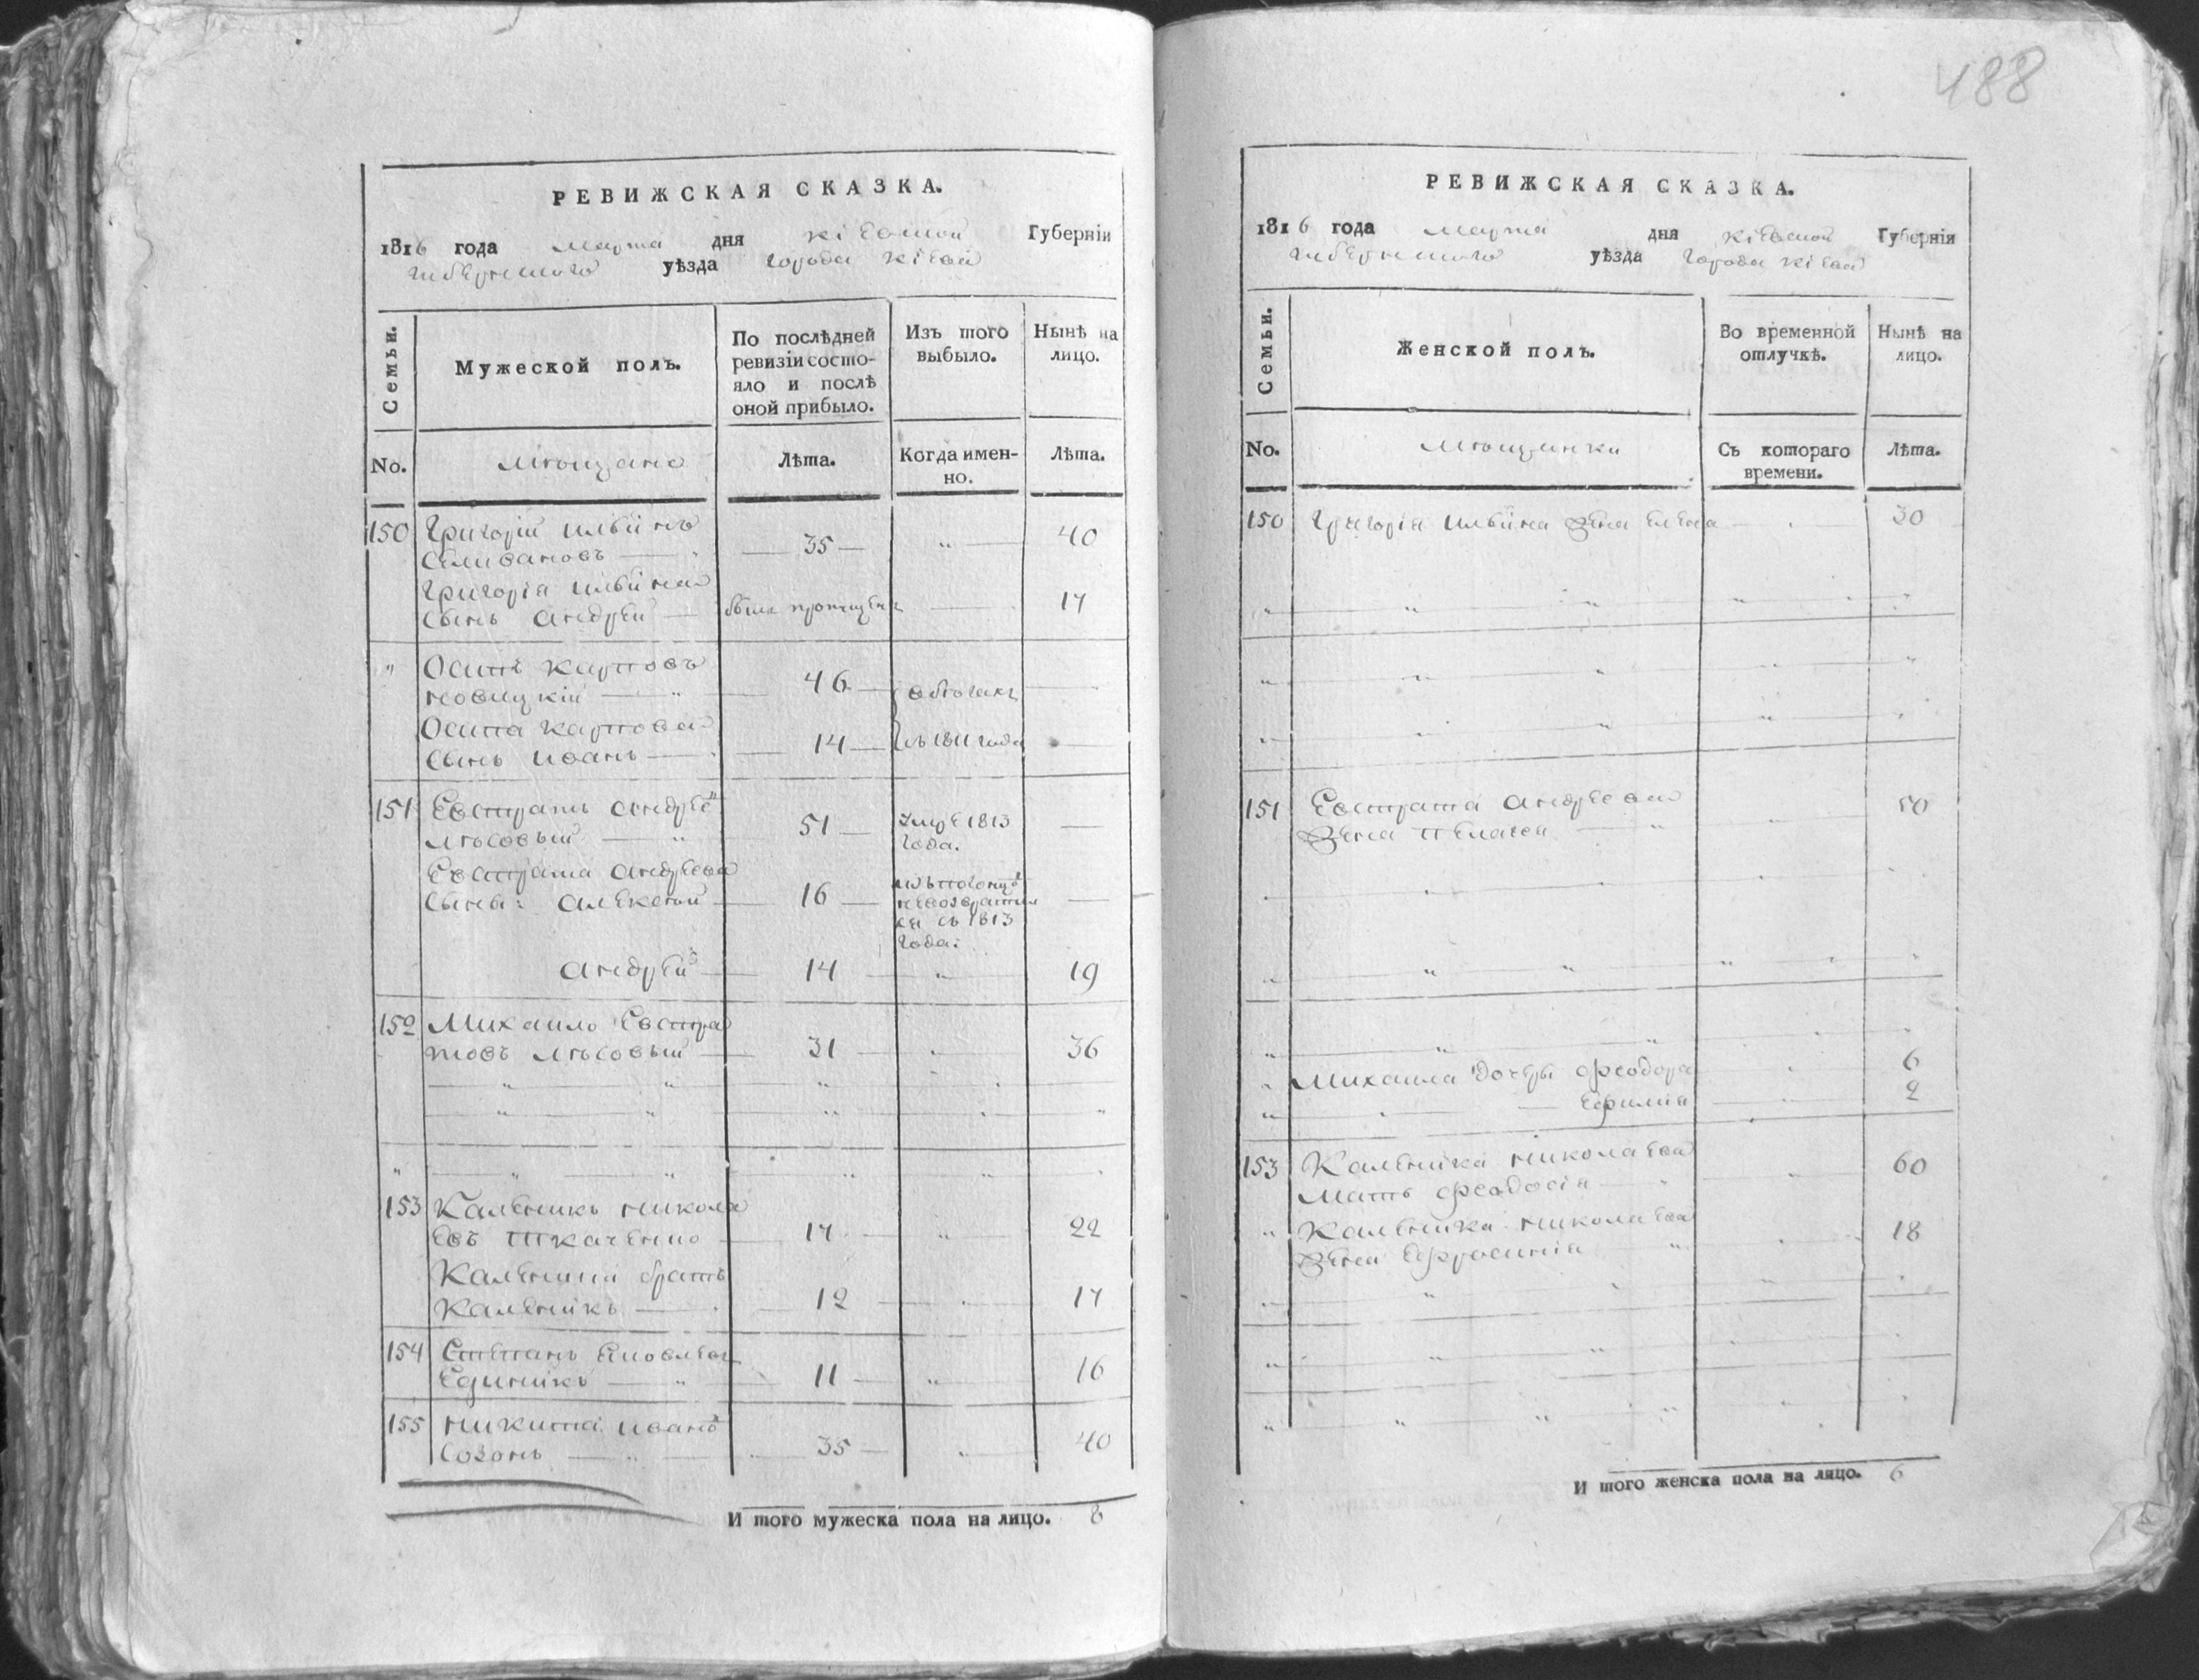 188
РЕВИЖСКАЯ СКАЗКА.
1816 года марта дня кіевской Губерніи
губернского уѣзда города кіева
Семьи. Мужеской полъ. По послѣдней ревизіи состояло и послѣ оной прибыло. Изъ того выбыло. Нынѣ на лицо.
No. мѣщане Лѣта. Когда именно. Лѣта.
150 Григорій ильинъ
Селивановъ — 35 — " — 40
Григорія ильина
сынъ андрей — былъ пропущенъ — 17
" Осипъ карповъ
новицкій — " — 46 — въ бегахъ —
Осипа карпова
сынъ иванъ — 14 — съ 1811 года —
151 Евстратъ андрее
лѣсовый — " 51 — умре 1813 года. —
Евстрата андреева
сынъ: алексѣй — 16 — невозвратился съ 1813 года: —
андрей — 14 — " — 19
152 Михаило Евстра
товъ лѣсовый — 31 — " — 36
153 Каленикъ никола
евъ ткаченко — 17 — " — 22
Каленика братъ
Каленикъ — 12 — " — 17
154 Степанъ яковлевъ
Единикъ — " — 11 — " — 16
155 никита иванъ
Созонъ — " — 35 — " — 40
И того мужеска пола на лицо. 8
РЕВИЖСКАЯ СКАЗКА.
1816 года марта дня кіевской Губерніи
губернского уѣзда города кіева
Семьи. Женской полъ. Во временной отлучкѣ. Нынѣ на лицо.
No. мѣщанки Съ котораго времени. Лѣта.
150 Григорія ильина жена елена — " — 30
151 Евстрата андреева
жена пелагея — " 50
Михаила дочери феодора — " — 6
" — " — Ефимія — " — 2
153 Каленика николаева
мать феодосія — " — 60
" Каленика николаева
жена Ефросинія — " — 18
И того женска пола на лицо. 6